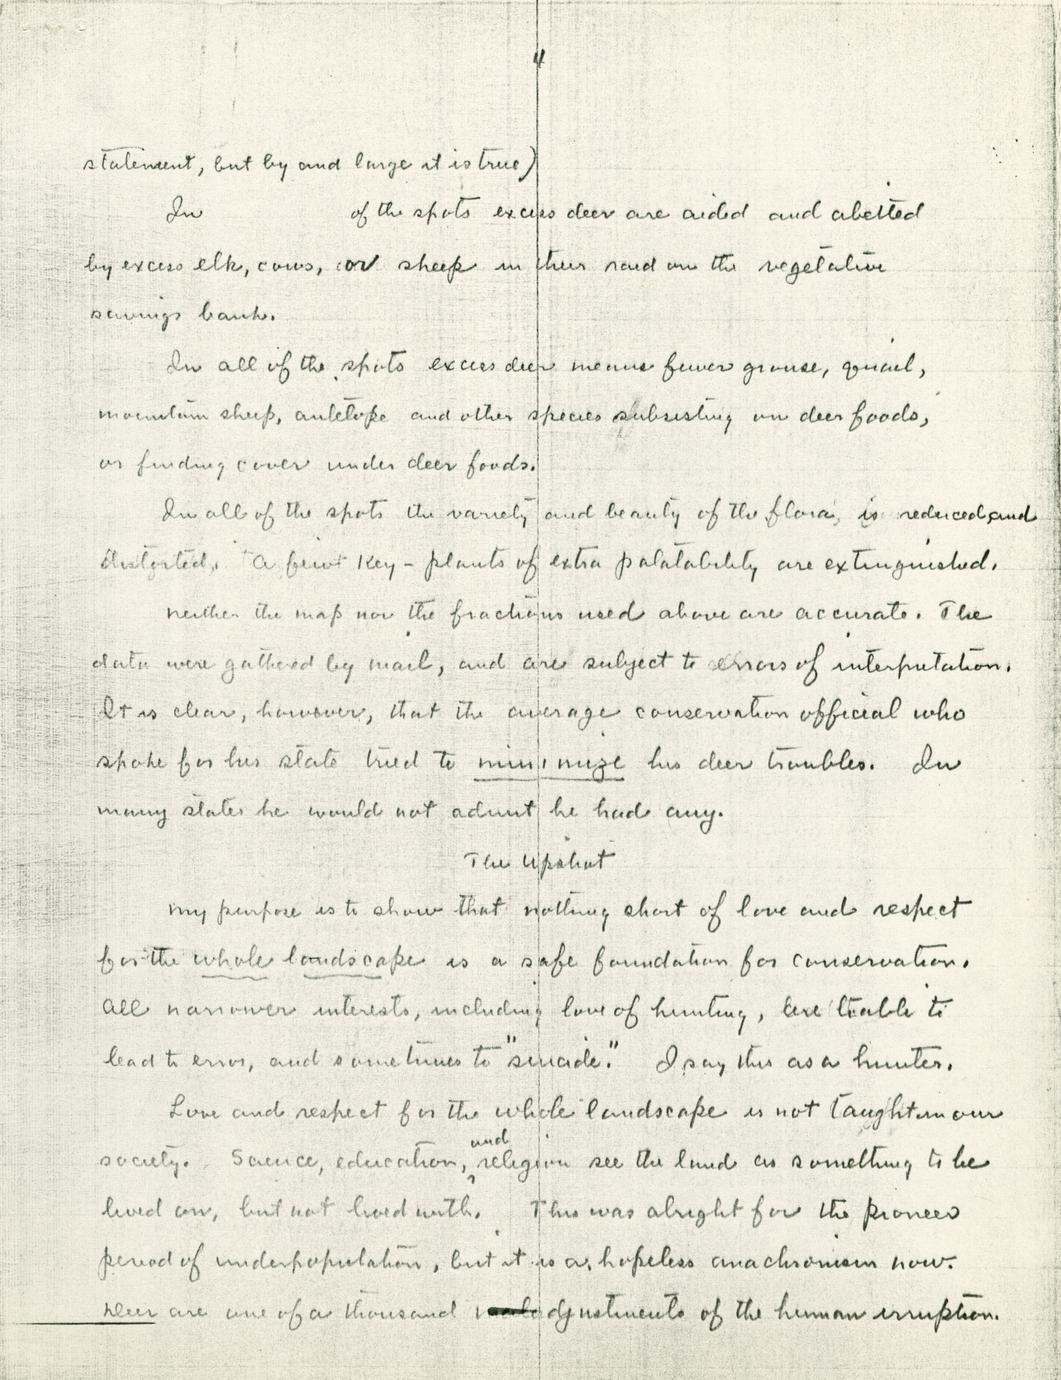 4
statement, but by and large it is true)
In of the spots excess deer are aided and abetted
by excess elk, cows, or sheep in their raid on the vegetative
savings bank.
In all of the spots excess deer means fewer grouse, quail,
mountain sheep, antelope and other species subsisting on deer foods,
or finding cover under deer foods.
In all of the spots the variety and beauty of the flora, is reduced and
distorted. A few key-plants of extra palatability are extinguished.
Neither the map nor the fractions used above are accurate. The
data were gathered by mail, and are subject to errors of interpretation.
It is clear, however, that the average conservation official who
spoke for his state tried to minimize his deer troubles. In
many states he would not admit he had any.
The Upshot
My purpose is to show that nothing short of love and respect
for the whole landscape is a safe foundation for conservation.
All narrower interests, including love of hunting, are liable to
lead to error, and sometimes to "suicide." I say this as a hunter.
Love and respect for the whole landscape is not taught in our
society. Science, education, and religion see the land as something to be
lived on, but not lived with. This was alright for the pioneer
period of underpopulation, but it is a hopeless anachronism now.
Deer are one of a thousand adjustments of the human irruption.